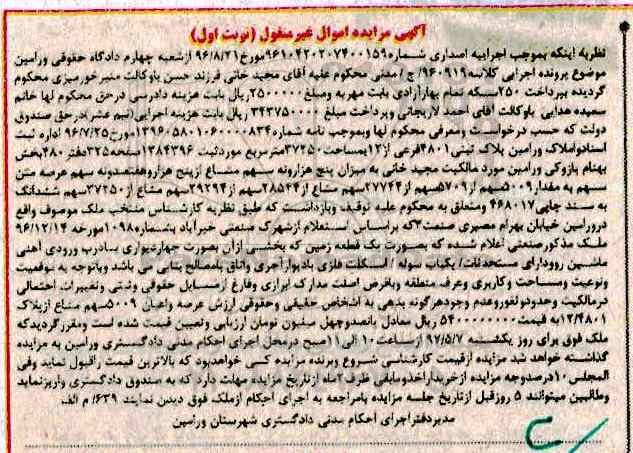 آگهی مزایده اموال غیرمنقول (نوبت اول)
نظربه اینکه بموجب اجراییه اصداری شماره ۹۶۱۰۴۲۰۲۰۷۴۰۰۱۵۹مورخ۹۶/۸/۲۱ ازشعبه چهارم دادگاه حقوقی ورامین
موضوع پرونده اجرایی کلاسه۹۶۰۹۱۹/ ج / مدنی محکوم علیه آقای مجید خانی فرزند حسن باوکالت منیر خورمیزی محکوم
گردیده بپرداخت ۲۵۰سکه تمام بهارآزادی بابت مهریه ومبلغ۲۵۰۰۰۰۰ریال بابت هزینه دادرسی درحق محکوم لها خانم
سعیده هدایی باوکالت آقای احمد لاریجانی وپرداخت مبلغ ۳۴۳۷۵۰۰۰۰ ریال بابت هزینه اجرایی(نیم عشر)درحق صندوق
دولت که حسب درخواست ومعرفی محکوم لها وبموجب نامه شماره۱۳۹۶۰۵۸۰۱۰۶۰۰۰۰۸۳۴مورخ۹۶/۷/۲۵ اداره ثبت
اسنادواملاک ورامین پلاک ثبتی۴۸۰۱فرعی از۱۲بمساحت۳۷۲۵۰مترمربع موردثبت ۱۳۸۴۳۹۶صفحه۳۲۵دفتر۴۸۰بخش
بهنام پازوکی ورامین مورد مالکیت مجید خانی به میزان پنج هزارونه سهم مشاع ازپنج هزاروهفتصدونه سهم عرصه متن
سهم به مقدار۵۰۰۹سهم از۵۷۰۹سهم از۲۷۷۴۴سهم مشاع از۲۸۵۴۴سهم از۲۹۲۹۴سهم مشاع از۳۷۲۵۰سهم ششدانگ
به سند چاپی۴۶۸۰۱۷ ومتعلق به محکوم علیه توقیف وبازداشت که طبق نظریه کارشناس منتخب ملک موصوف واقع
درورامین خیابان بهرام مصیری صنعت۲که براساس استعلام ازشهرک صنعتی خیرآباد بشماره۱۰۹۸مورخه ۹۶/۱۲/۱۴
ملک مذکورصنعتی اعلام شده که بصورت یک قطعه زمین که بخشی ازآن بصورت چهاردیواری بادرب ورودی آهنی
ماشین رو دارای مستحدثات/ یکباب سوله / اسکلت فلزی بادیوارآجری واتاق بامصالح بنایی می باشد وباتوجه به موقعیت
ونوعیت ومساحت وکاربری وعرف منطقه وبافرض اصلت مدارک ابرازی وفارغ ازمسایل حقوقی وثبتی وتغییرات احتمالی
درمالکیت وحدودوثغوروعدم وجودهرگونه بدهی به اشخاص حقیقی وحقوقی ارزش عرصه واعیان ۵۰۰۹سهم مشاع ازپلاک
۱۲/۴۸۰۱به قیمت۵۴۰۰۰۰۰۰۰۰ ریال معادل پانصدوچهل میلیون تومان ارزیابی وتعیین قیمت شده است ومقررگردیدکه
ملک فوق برای روز یکشنبه ۹۷/۵/۷ ازساعت۱۰ الی۱۱صبح درمحل اجرای احکام مدنی دادگستری ورامین به مزایده
گذاشته خواهد شد مزایده ازقیمت کارشناسی شروع وبرنده مزایده کسی خواهدبود که بالاترین قیمت راقبول نماید وفی
المجلس ۱۰درصدوجه مزایده ازخریداراخذومابقی ظرف ۱ماه ازتاریخ مزایده مهلت دارد که به صندوق دادگستری واریزنماید
وطالبین میتوانند ۵ روزقبل ازتاریخ جلسه مزایده بامراجعه به اجرای احکام ازملک فوق دیدن نمایند ۶۳۹/ م الف
مدیردفتراجرای احکام مدنی دادگستری شهرستان ورامین